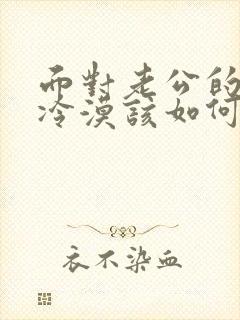 而對老公的
冷漠該如何
衣不染血